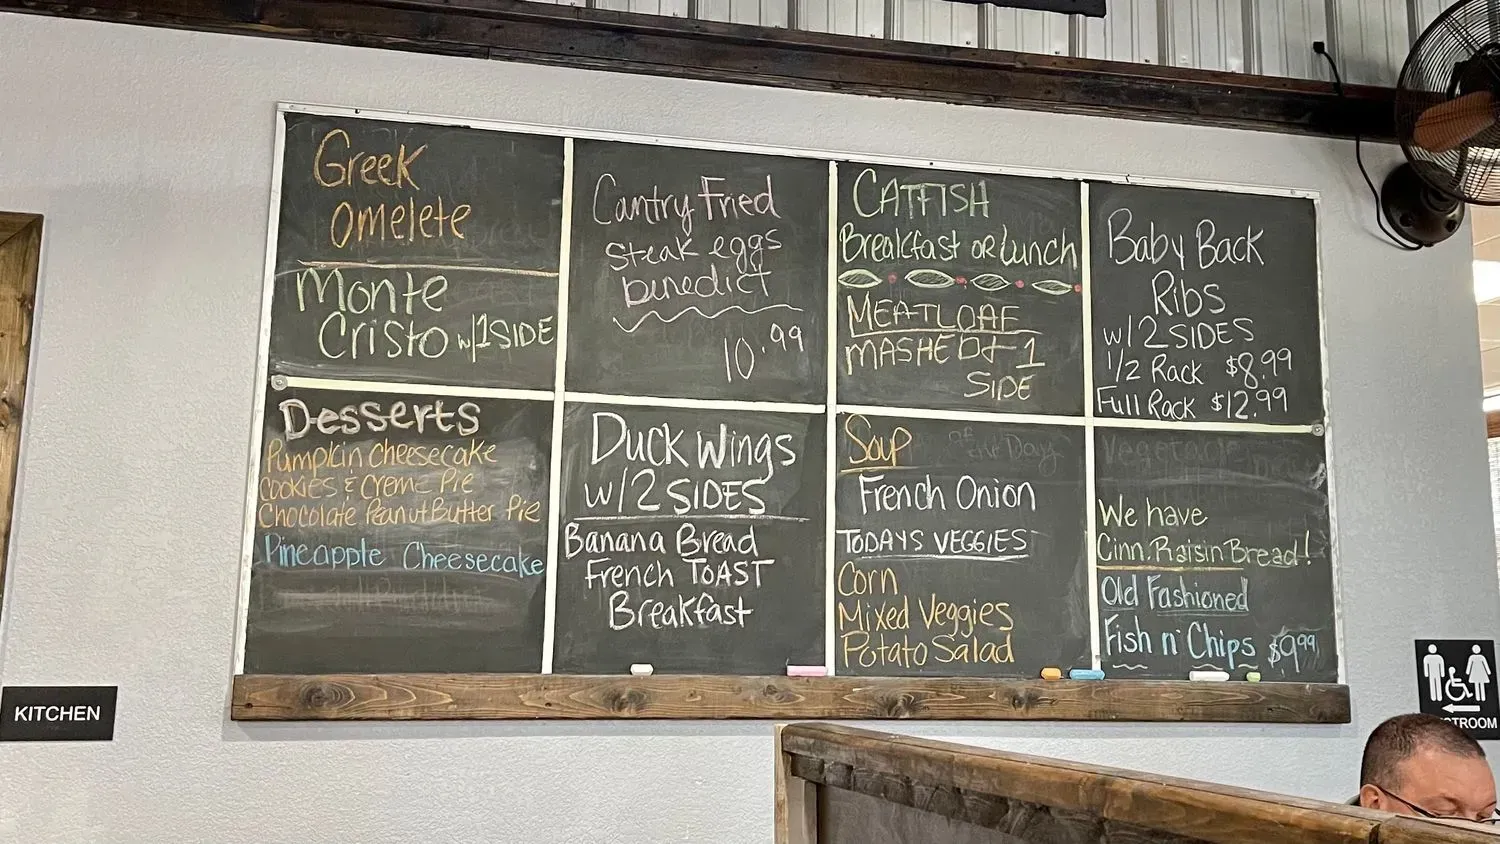 Greek
Omelete
Monte
Cristo w/1 SIDE
Cantry Fried
Steak eggs
benedict
10.99
CATFISH
Breakfast or Lunch
MEATLOAF
MASHED + 1
SIDE
Baby Back
Ribs
w/ 2 SIDES
1/2 Rack $8.99
Full Rack $12.99
Desserts
Pumpkin Cheesecake
Cookies & Creme Pie
Chocolate Peanut Butter Pie
Pineapple Cheesecake
Duck Wings
w/ 2 SIDES
Banana Bread
French TOAST
Breakfast
Soup of the Day
French Onion
TODAYS VEGGIES
Corn
Mixed Veggies
Potato Salad
We have
Cinn. Raisin Bread!
Old Fashioned
Fish n' Chips $9.99
KITCHEN